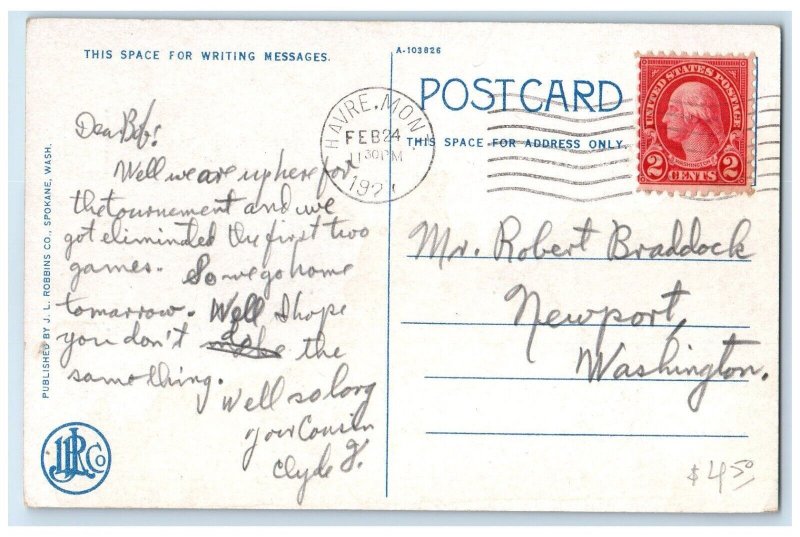 THIS SPACE FOR WRITING MESSAGES.
Dear Bob!
Well we are up here for
the tournement and we
got eliminated the first two
games. So we go home
tomorrow. Well I hope
you don't do the
same thing.
Well so long
your Cousin
Clyde
PUBLISHED BY J. L. ROBBINS CO., SPOKANE, WASH.
JLR Co
A-103826
POSTCARD
THIS SPACE FOR ADDRESS ONLY.
HAVRE, MONT
FEB 24
1 30 PM
UNITED STATES POSTAGE
WASHINGTON
2 CENTS 2
Mr. Robert Braddock
Newport,
Washington.
$4.50